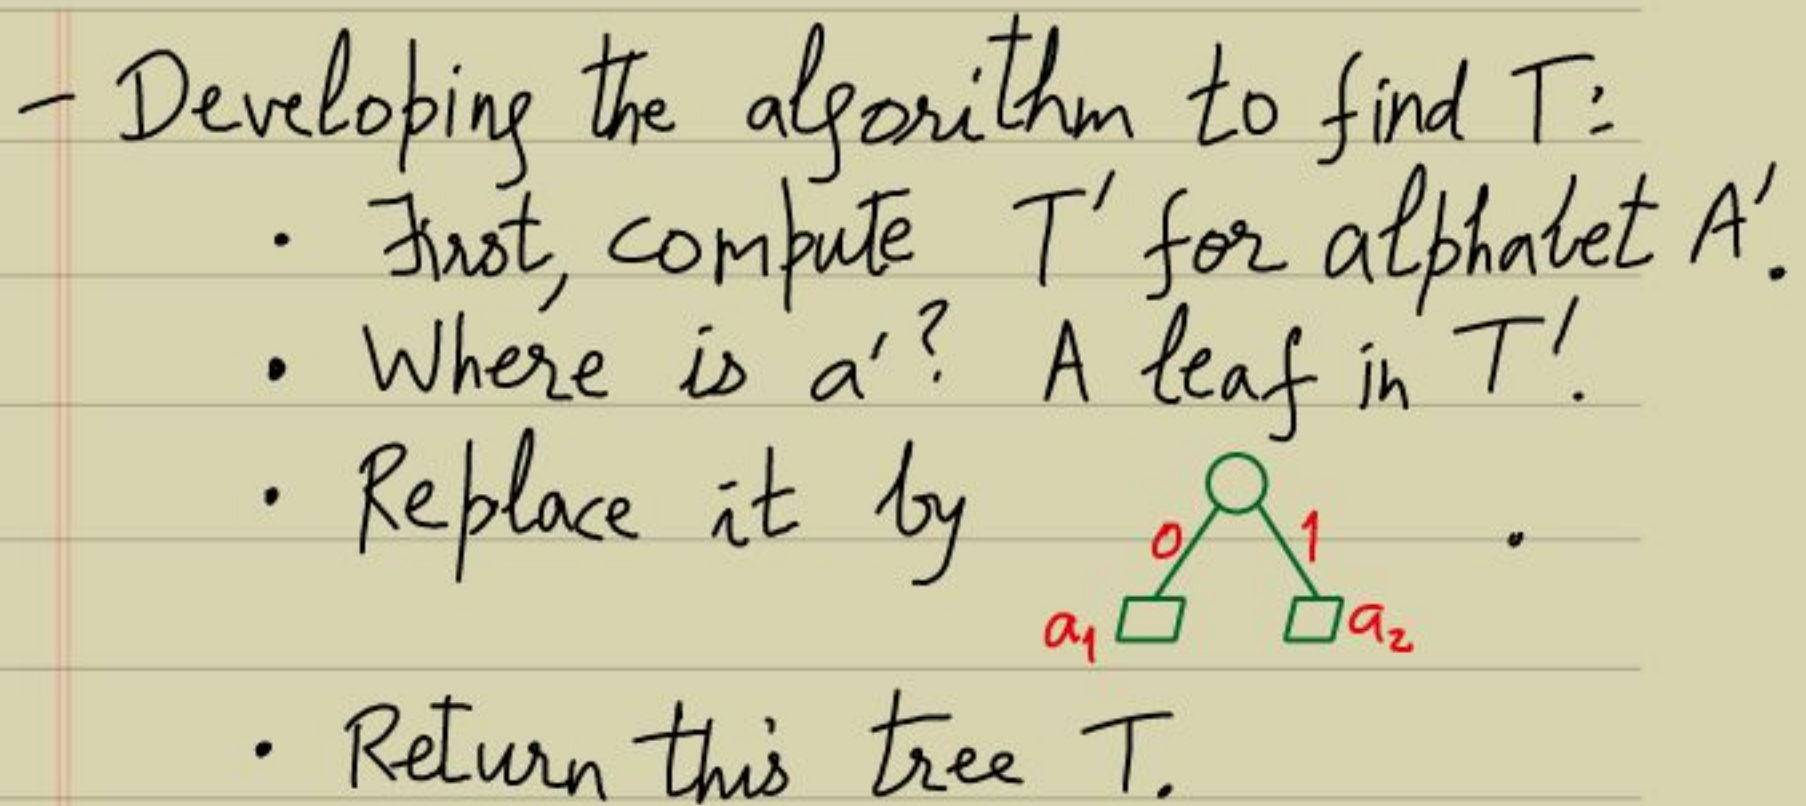 - Developing the algorithm to find T:
• First, compute T' for alphabet A'.
• Where is a'? A leaf in T'.
• Replace it by .
0 1
a₁ a₂
• Return this tree T.